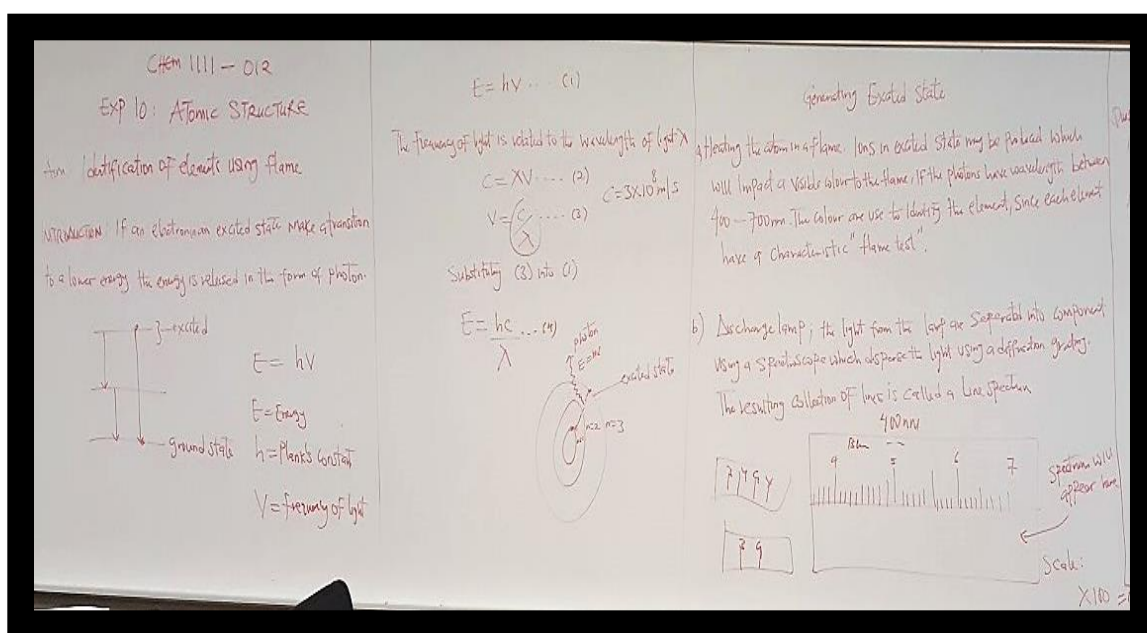 CHEM 1111 - 012
EXP 10: ATOMIC STRUCTURE
Aim: Identification of elements using flame
INTRODUCTION If an electron in an excited state make a transition
to a lower energy the energy is released in the form of photon.
excited
ground state
E = hV
E = Energy
h = Plank's Constant
V = frequency of light
E = hV .... (1)
The frequency of light is related to the wavelength of light λ
C = λV .... (2) C = 3×10⁸ m/s
V = C/λ .... (3)
Substituting (3) into (1)
E = hc/λ .... (4)
photon
E = hV
excited state
n=2 n=3
Generating Excited State
a) Heating the atom in a flame. Ions in excited state may be
will impact a visible colour to the flame, if the photons have wavelength between
400 - 700nm. The colour are use to identify the element, since each element
have a characteristic "flame test".
b) Discharge lamp; the light from the lamp are separated into component
using a spectroscope which disperse the light using a diffraction grating.
The resulting collection of lines is called a line spectrum
400nm
4 5 6 7
Spectrum will
appear here
Scale:
X100 =